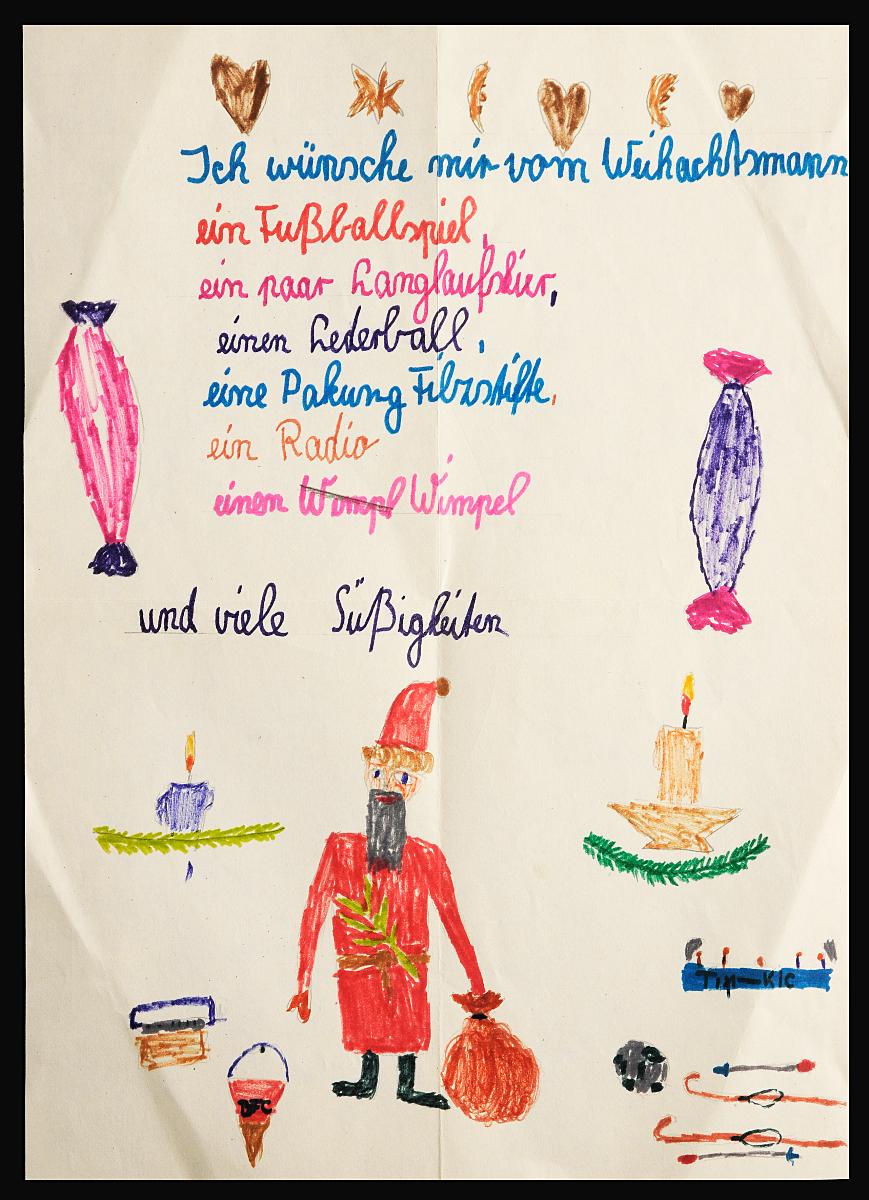 Ich wünsche mir vom Weihachtsmann
ein Fußballspiel,
ein paar Langlaufskier,
einen Lederball,
eine Pakung Fibzstifte,
ein Radio
einen Wimpl Wimpel
und viele Süßigkeiten
Tip-Kic
BFC